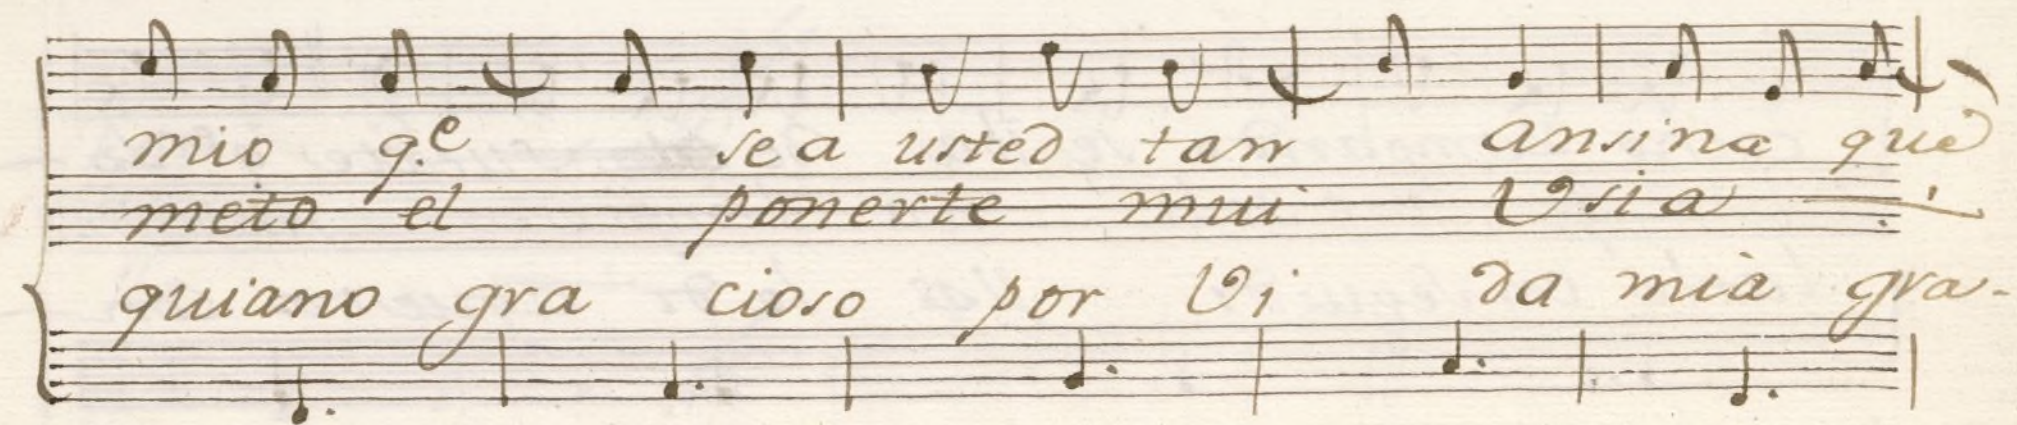 mio q.e sea usted tan ansina que
meto el ponerte mui Vsia
quiano gra cioso por Vi da mia gra-